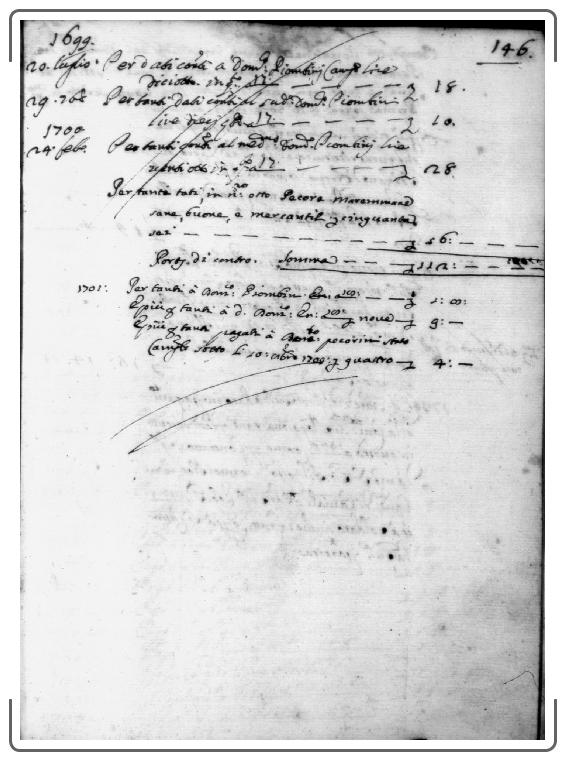 1699.
146.
20. luglio Per dati cōti a Dom.º Piombini Camp.º lire
Diciotto. in f.º a 17 — — — — 18.
29. 7bre Per tanti dati cōti al sud.º Dom.º Piombini
lire Dieci a 17 — — — — 10.
1700
24. febr. Per tanti cōti al med.mo Dom.º Piombini lire
ventiotto in a 17 — — — — 28
Per tante tati, in n.ro otto Pecore maremmane
sane, buone, e mercantil cinquanta
sei — — — — 56: — — —
Porto di contro. Somma — — 112: — —
1701: Per tanti à Dom.co: Piombin — — — 1: 00:
E più tanti à d. Dom.co: nove — 9: —
E più tanti pagati à pecorini stato
sotto li 10: 1700: quattro — 4: —